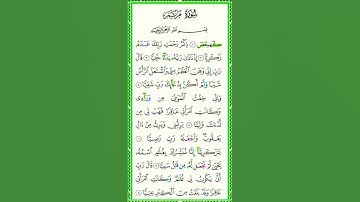 سُورَةُ مَرْيَمَ
بِسْمِ اللَّهِ الرَّحْمَٰنِ الرَّحِيمِ
كٓهيعٓصٓ ۝ ذِكْرُ رَحْمَتِ رَبِّكَ عَبْدَهُۥ
زَكَرِيَّآ ۝ إِذْ نَادَىٰ رَبَّهُۥ نِدَآءً خَفِيًّا ۝ قَالَ
رَبِّ إِنِّى وَهَنَ ٱلْعَظْمُ مِنِّى وَٱشْتَعَلَ ٱلرَّأْسُ
شَيْبًا وَلَمْ أَكُنۢ بِدُعَآئِكَ رَبِّ شَقِيًّا ۝
وَإِنِّى خِفْتُ ٱلْمَوَٰلِىَ مِن وَرَآءِى
وَكَانَتِ ٱمْرَأَتِى عَاقِرًا فَهَبْ لِى مِن
لَّدُنكَ وَلِيًّا ۝ يَرِثُنِى وَيَرِثُ مِنْ ءَالِ
يَعْقُوبَ ۖ وَٱجْعَلْهُ رَبِّ رَضِيًّا ۝
يَٰزَكَرِيَّآ إِنَّا نُبَشِّرُكَ بِغُلَٰمٍ ٱسْمُهُۥ
يَحْيَىٰ لَمْ نَجْعَل لَّهُۥ مِن قَبْلُ سَمِيًّا ۝ قَالَ رَبِّ
أَنَّىٰ يَكُونُ لِى غُلَٰمٌ وَكَانَتِ ٱمْرَأَتِى
عَاقِرًا وَقَدْ بَلَغْتُ مِنَ ٱلْكِبَرِ عِتِيًّا ۝